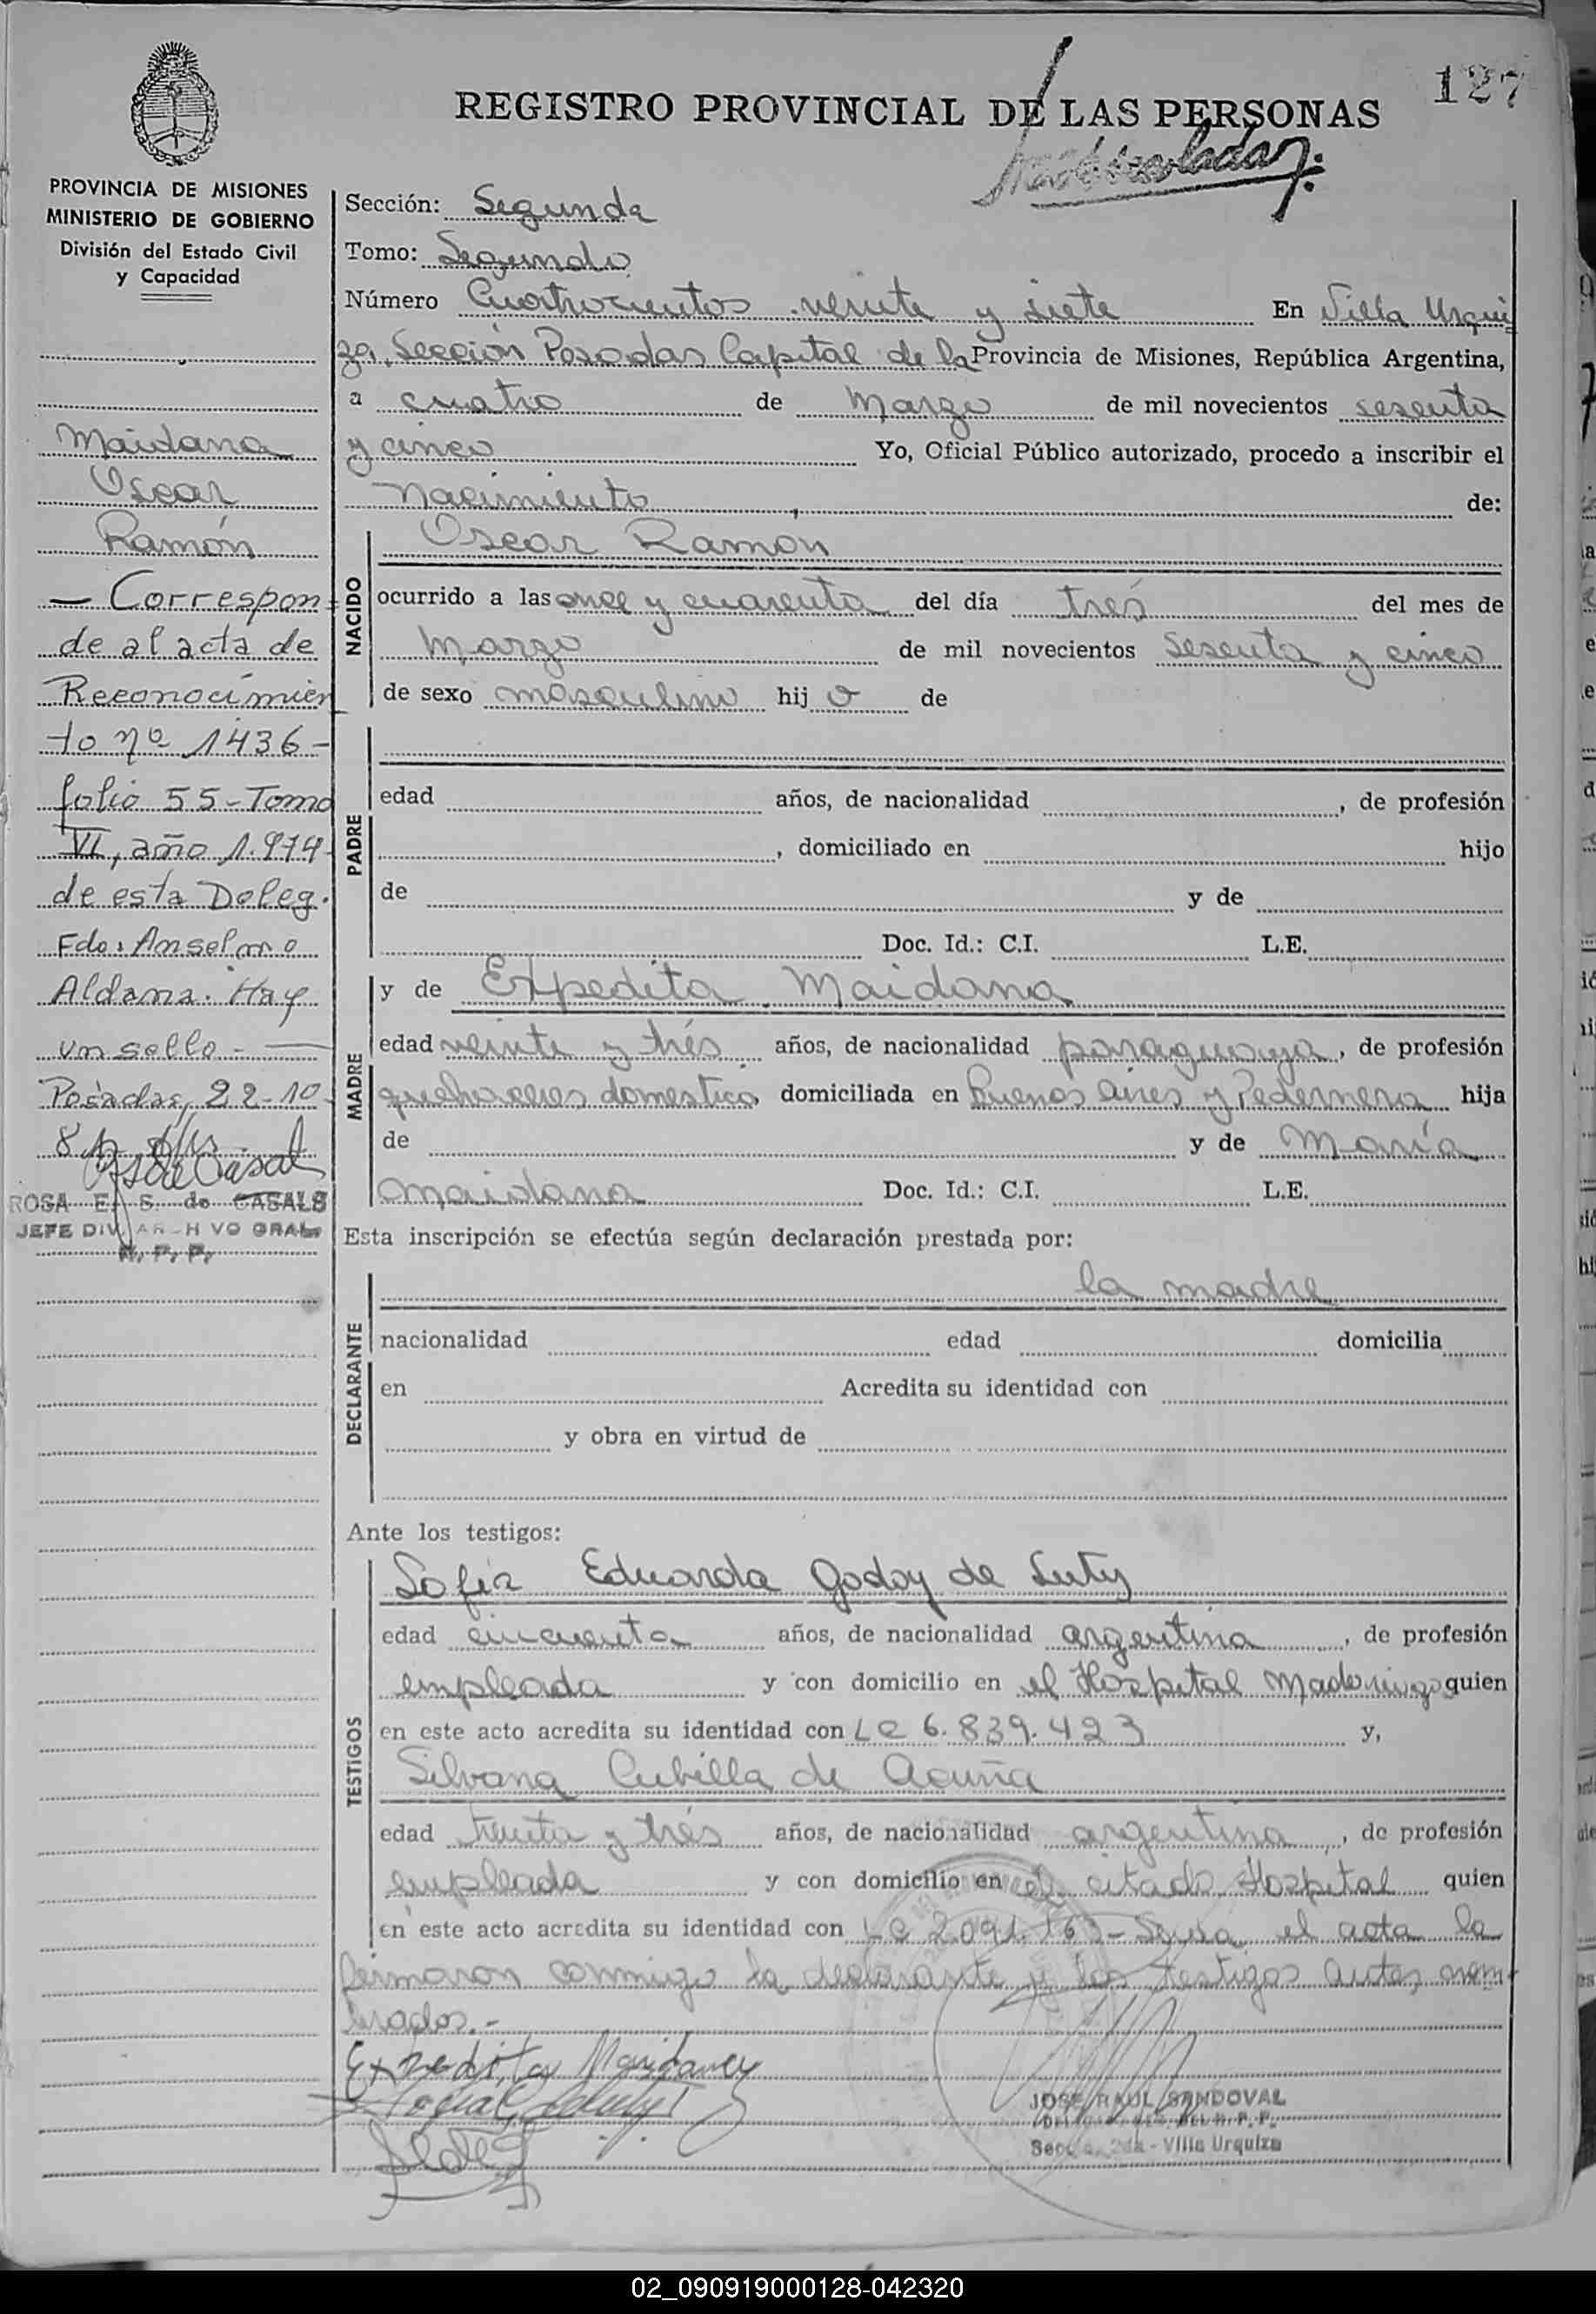 127
REGISTRO PROVINCIAL DE LAS PERSONAS
PROVINCIA DE MISIONES
MINISTERIO DE GOBIERNO
División del Estado Civil
y Capacidad
Maidana
Oscar
Ramón
— Correspon-
de al acta de
Reconocimien
to nº 1436-
folio 55-Tomo
VI, año 1.974
de esta Deleg.
Fdo: Anselmo
Aldana. Hay
un sello. —
Posadas, 22-10-
ROSA E. S. de CASALS
JEFE DIV. ARCHIVO GRAL
R. P. P.
Sección: Segunda
Tomo: Segundo
Número Cuatrocientos veinte y siete En Villa Urqui
za, Sección Posadas Capital de la Provincia de Misiones, República Argentina,
a cuatro de Marzo de mil novecientos sesenta
y cinco Yo, Oficial Público autorizado, procedo a inscribir el
Nacimiento, de:
NACIDO
Oscar Ramon
ocurrido a las once y cuarenta del día trés del mes de
Marzo de mil novecientos sesenta y cinco
de sexo masculino hijo de
PADRE
edad años, de nacionalidad , de profesión
, domiciliado en hijo
de y de
Doc. Id.: C.I. L.E.
MADRE
y de Expedita Maidana
edad veinte y trés años, de nacionalidad paraguaya, de profesión
quehaceres domestico, domiciliada en Buenos Aires y Pedernera hija
de y de María
Maidana Doc. Id.: C.I. L.E.
Esta inscripción se efectúa según declaración prestada por:
DECLARANTE
la madre
nacionalidad edad domicilia
en Acredita su identidad con
y obra en virtud de
Ante los testigos:
TESTIGOS
Sofia Eduarda Godoy de
edad cincuenta años, de nacionalidad argentina, de profesión
empleada y con domicilio en el Hospital Madariaga quien
en este acto acredita su identidad con LC 6.839.423 y,
Silvana Cubilla de Acuña
edad treinta y trés años, de nacionalidad argentina, de profesión
empleada y con domicilio en el citado Hospital quien
en este acto acredita su identidad con LC el acta la
firmaron conmigo la declarante y los testigos antes nom-
brados.-
Expedita Maidana
JOSE RAUL SANDOVAL
DEL R. P. P.
Secc. 2da - Villa Urquiza
02_090919000128-042320